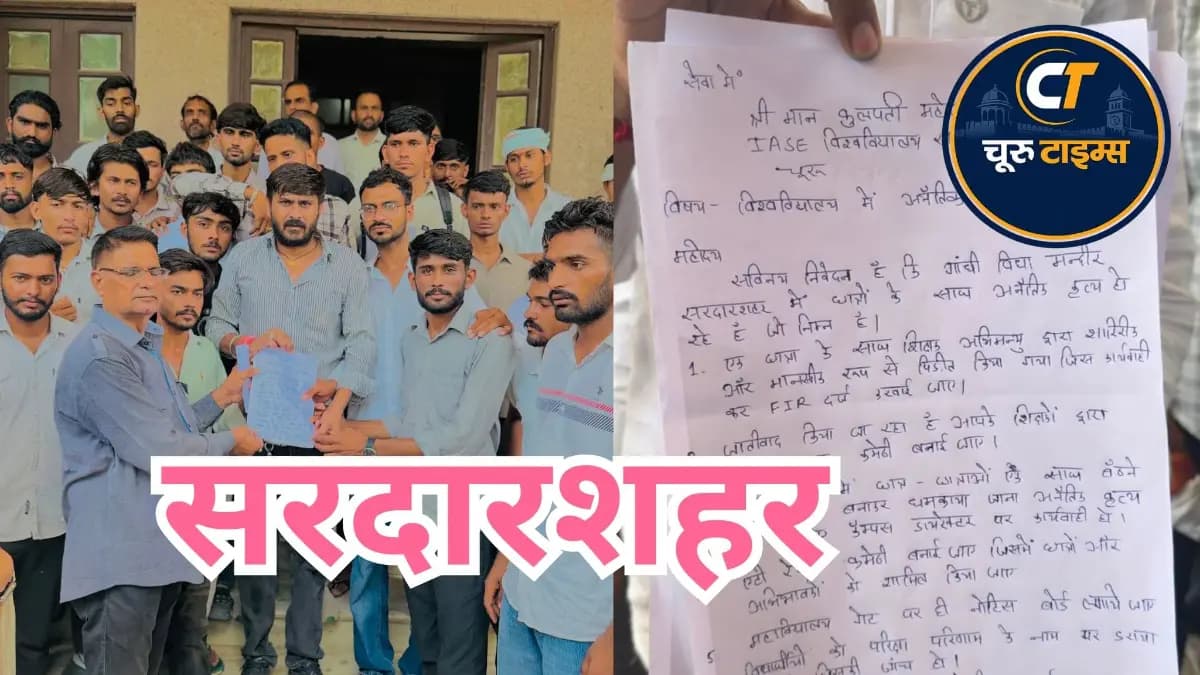 सेवा में
श्री मान कुलपती
IASE विश्वविद्यालय
चूरू
विषय- विश्वविद्यालय में
महोदय
सविनय निवेदन है कि गांधी विद्या मन्दीर
सरदारशहर में छात्रों के साथ अनैतिक कृत्य हो
रहे है जो निम्न है।
1. एक छात्रा के साथ शिक्षक अभिमन्यु द्वारा शारिरीक
और मानसीक रूप से पिडीत किया गया जिस कार्यवाही
कर FIR दर्ज करवाई जाए।
जातीवाद किया जा रहा है आपके शिक्षकों द्वारा
कमेठी बनाई जाए।
में छात्र-छात्राओं एक साथ बैठने
बनाकर धमकाया जाना अनैतिक कृत्य
कैम्पस डायरेक्टर पर कार्यवाही हो।
एंटी कमेठी बनाई जाए जिसमें छात्रों और
अभिभावकों को शामिल किया जाए
महाविद्यालय गेट पर ही नोटिस बोर्ड लगाये जाए
5. विद्यार्थीयो को परिक्षा परिणाम के नाम पर डराया
जांच हो।
CT
चूरू टाइम्स
सरदारशहर